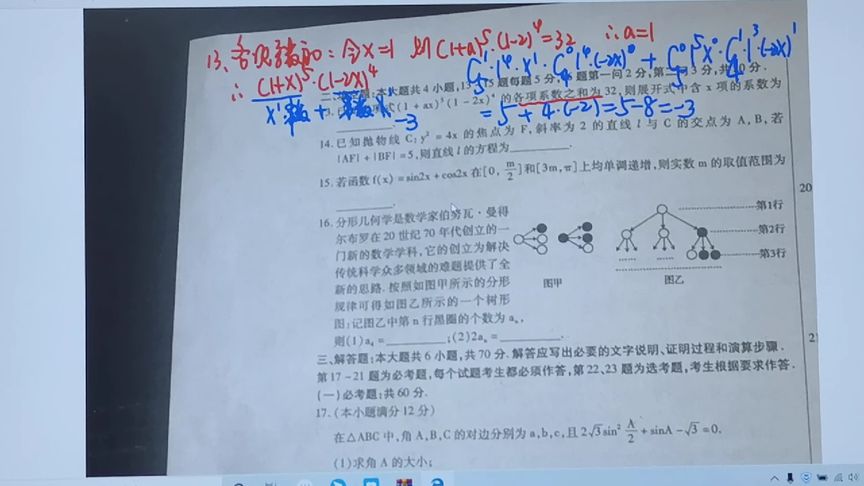 13、各项系数和：令x=1 则(1+a)⁵·(1-2)⁴=32 ∴a=1
∴ (1+x)⁵·(1-2x)⁴
C₅¹·1⁴·x¹·C₄⁰·1⁴·(-2x)⁰ + C₅⁰·1⁵x⁰·C₄¹·1³·(-2x)¹
=5+4·(-2)=5-8=-3
-3
本大题共4小题,
题每题5分,
题第一问2分,第二
3分,共
(1+ax)⁵(1-2x)⁴的各项系数之和为32,则展开式中含x项的系数为
14.已知抛物线C:y²=4x的焦点为F,斜率为2的直线l与C的交点为A,B,若
|AF|+|BF|=5,则直线l的方程为________.
15.若函数f(x)=sin2x+cos2x在[0,m/2]和[3m,π]上均单调递增,则实数m的取值范围为
________.
16.分形几何学是数学家伯努瓦·曼得
尔布罗在20世纪70年代创立的一
门新的数学学科,它的创立为解决
传统科学众多领域的难题提供了全
新的思路.按照如图甲所示的分形
规律可得如图乙所示的一个树形
图:记图乙中第n行黑圈的个数为aₙ,
则(1)a₄=________;(2)2aₙ=________.
第1行
第2行
第3行
图甲
图乙
三、解答题:本大题共6小题,共70分.解答应写出必要的文字说明、证明过程和演算步骤.
第17~21题为必考题,每个试题考生都必须作答,第22、23题为选考题,考生根据要求作答.
(一)必考题:共60分.
17.(本小题满分12分)
在△ABC中,角A,B,C的对边分别为a,b,c,且2√3sin²A/2+sinA-√3=0.
(1)求角A的大小;
20